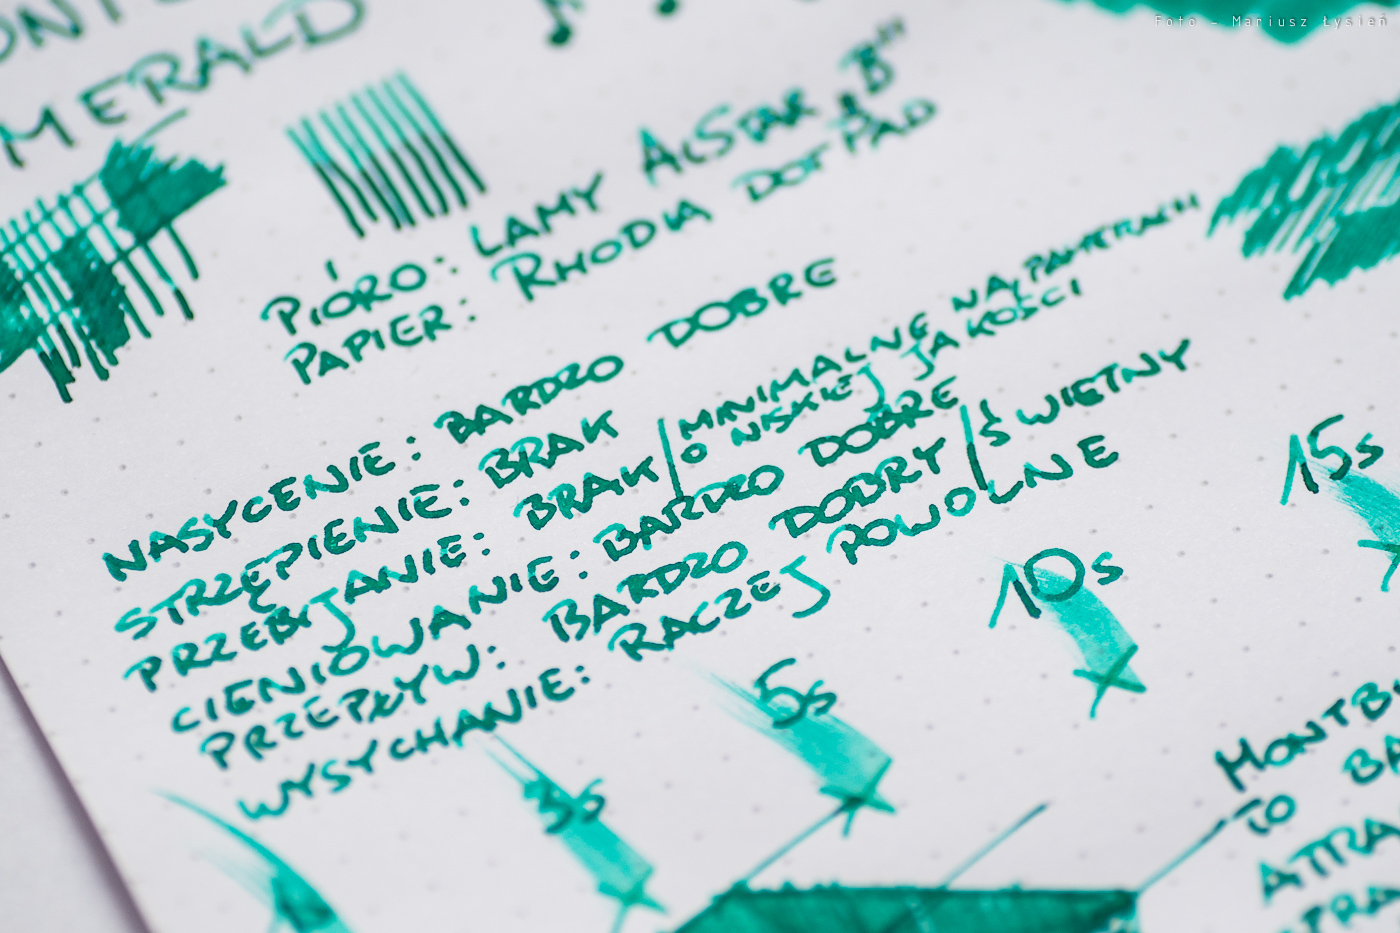 Foto - Mariusz Łysień
MERALD
PIÓRO: LAMY AlSTAR „B"
PAPIER: RHODIA DOT PAD
NASYCENIE: BARDZO DOBRE
STRZĘPIENIE: BRAK
PRZEBIJANIE: BRAK / MINIMALNE NA PAPIERACH
O NISKIEJ JAKOŚCI
CIENIOWANIE: BARDZO DOBRE
PRZEPŁYW: BARDZO DOBRY / ŚWIETNY
WYSYCHANIE: RACZEJ POWOLNE
15s
10s
5s
3s
1s
MONTB
TO BA
ATRA